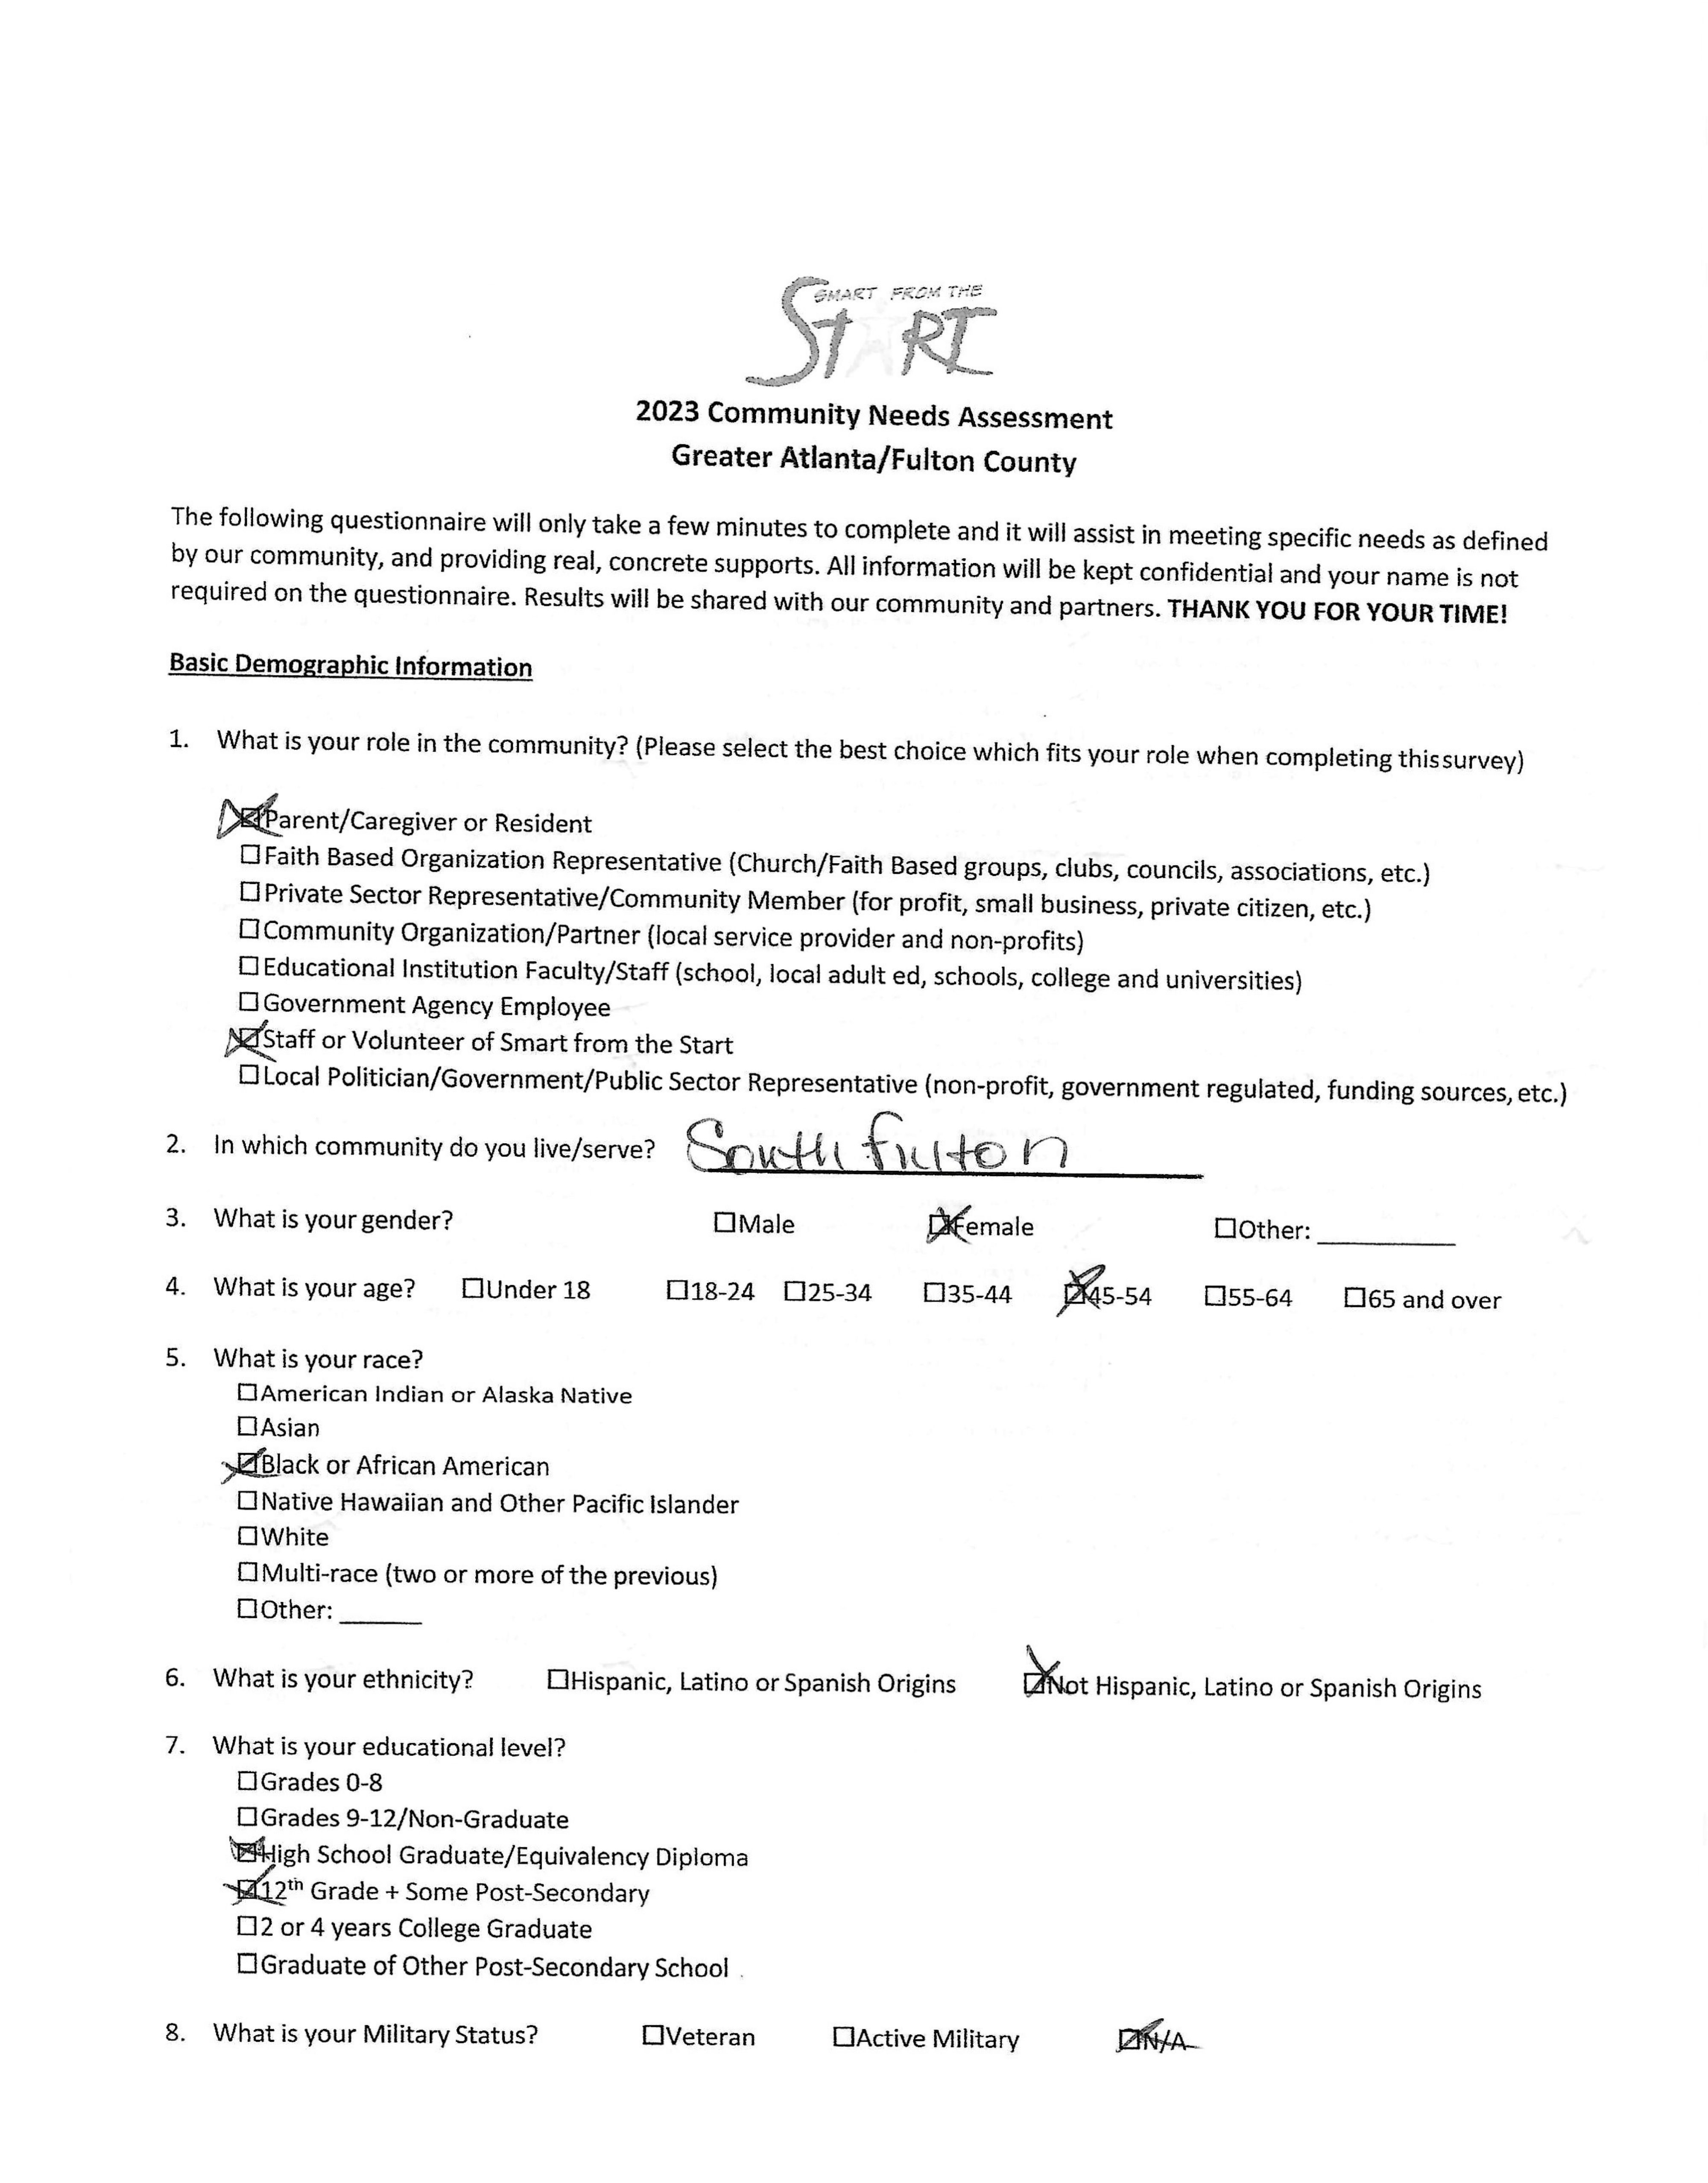 SMART FROM THE
START
2023 Community Needs Assessment
Greater Atlanta/Fulton County
The following questionnaire will only take a few minutes to complete and it will assist in meeting specific needs as defined
by our community, and providing real, concrete supports. All information will be kept confidential and your name is not
required on the questionnaire. Results will be shared with our community and partners. THANK YOU FOR YOUR TIME!
Basic Demographic Information
1. What is your role in the community? (Please select the best choice which fits your role when completing this survey)
☒Parent/Caregiver or Resident
☐Faith Based Organization Representative (Church/Faith Based groups, clubs, councils, associations, etc.)
☐Private Sector Representative/Community Member (for profit, small business, private citizen, etc.)
☐Community Organization/Partner (local service provider and non-profits)
☐Educational Institution Faculty/Staff (school, local adult ed, schools, college and universities)
☐Government Agency Employee
☒Staff or Volunteer of Smart from the Start
☐Local Politician/Government/Public Sector Representative (non-profit, government regulated, funding sources, etc.)
2. In which community do you live/serve? South Fulton
3. What is your gender? ☐Male ☒Female ☐Other: ________
4. What is your age? ☐Under 18 ☐18-24 ☐25-34 ☐35-44 ☒45-54 ☐55-64 ☐65 and over
5. What is your race?
☐American Indian or Alaska Native
☐Asian
☒Black or African American
☐Native Hawaiian and Other Pacific Islander
☐White
☐Multi-race (two or more of the previous)
☐Other: ______
6. What is your ethnicity? ☐Hispanic, Latino or Spanish Origins ☒Not Hispanic, Latino or Spanish Origins
7. What is your educational level?
☐Grades 0-8
☐Grades 9-12/Non-Graduate
☒High School Graduate/Equivalency Diploma
☒12th Grade + Some Post-Secondary
☐2 or 4 years College Graduate
☐Graduate of Other Post-Secondary School
8. What is your Military Status? ☐Veteran ☐Active Military ☒N/A